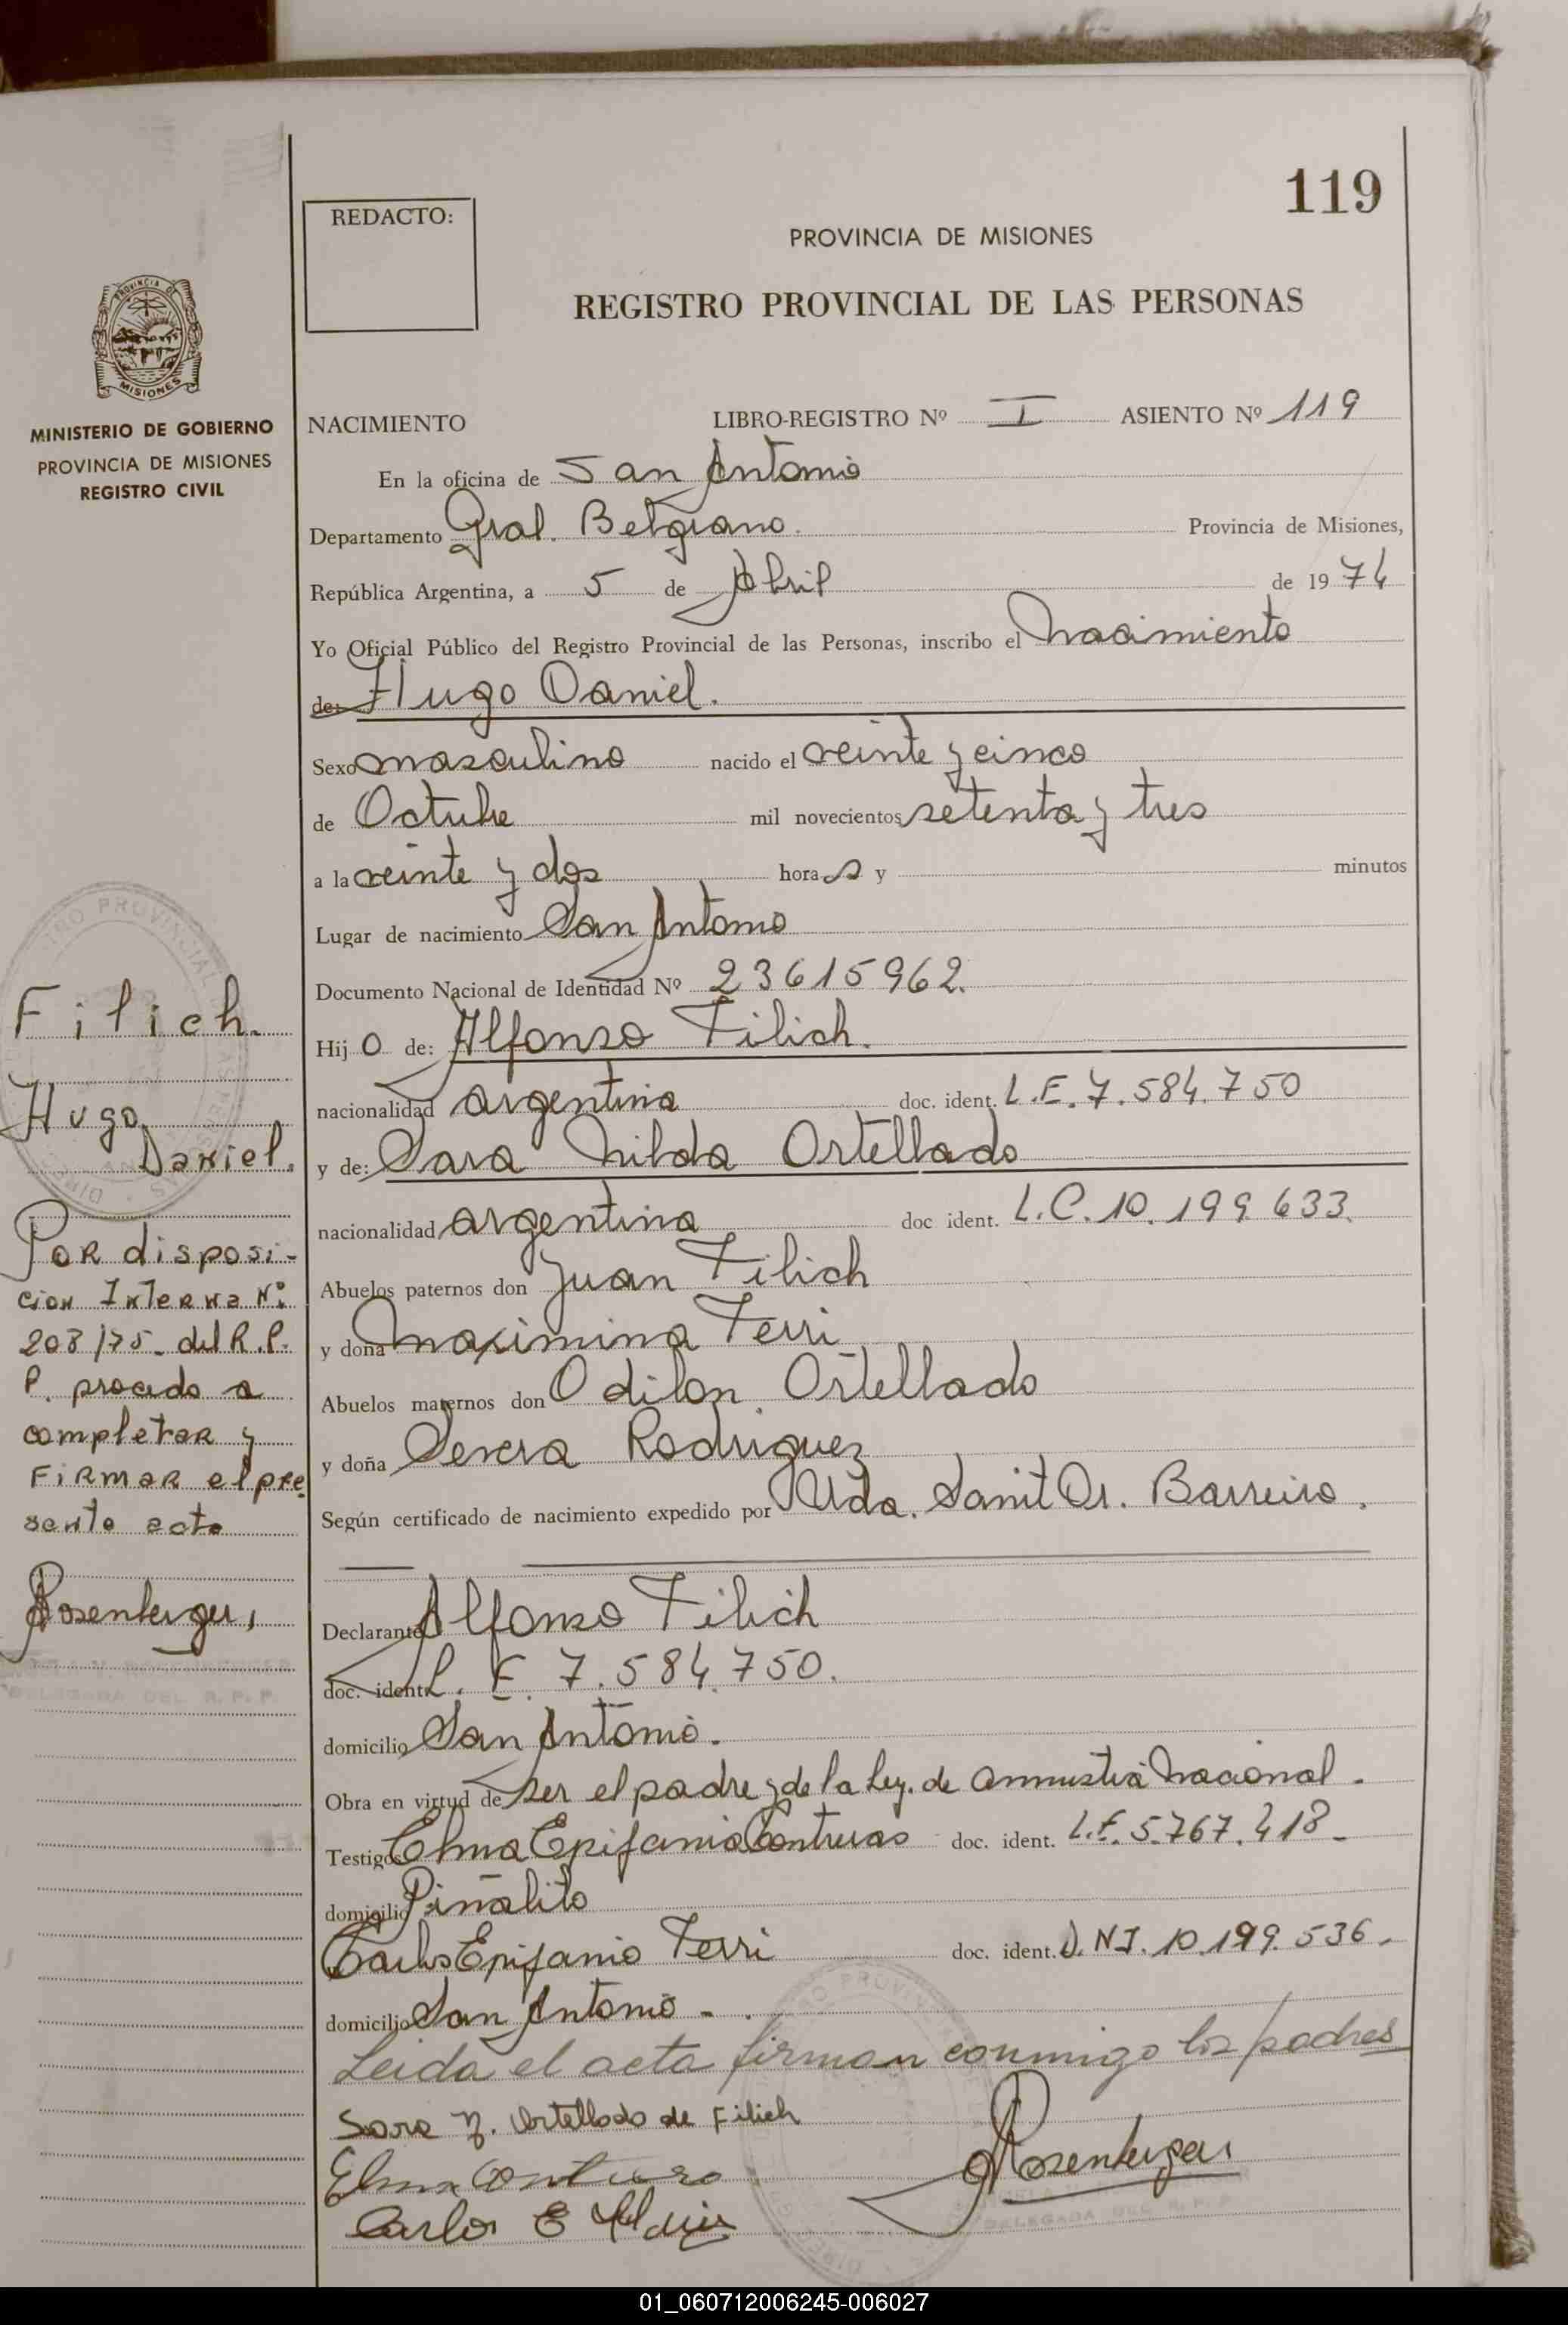 119
REDACTO:
PROVINCIA DE MISIONES
REGISTRO PROVINCIAL DE LAS PERSONAS
MISIONES
MINISTERIO DE GOBIERNO
PROVINCIA DE MISIONES
REGISTRO CIVIL
NACIMIENTO LIBRO-REGISTRO Nº I ASIENTO Nº 119
En la oficina de San Antonio
Departamento Gral. Belgrano. Provincia de Misiones,
República Argentina, a 5 de Abril de 1974
Yo Oficial Público del Registro Provincial de las Personas, inscribo el nacimiento
de: Hugo Daniel.
Sexo masculino nacido el veinte y cinco
de Octubre mil novecientos setenta y tres
a la veinte y dos horas y minutos
Lugar de nacimiento San Antonio
Documento Nacional de Identidad Nº 23615962.
Hijo de: Alfonso Filich.
nacionalidad argentina doc. ident. L.E. 7.584.750
y de: Sara Nilda Ortellado
nacionalidad argentina doc ident. L.C. 10.199.633.
Abuelos paternos don Juan Filich
y doña Maximina Ferri
Abuelos maternos don Odilon Ortellado
y doña Severa Rodriguez
Según certificado de nacimiento expedido por Uda. Sanit Dr. Barreiro.
Declarante Alfonso Filich
doc. ident. L. E. 7.584.750.
domicilio San Antonio.
Obra en virtud de ser el padre y de la Ley. de Amnustia Nacional.
Testigos Elma Epifania Contreras doc. ident. L.F. 5.767.418-
domicilio Piñalito
Carlos Epifanio Ferri doc. ident. D.N.I. 10.199.536.
domicilio San Antonio -
Leida el acta firman conmigo los padres
Sara N. Ortellado de Filich
Elma Contrera
Carlos E
Rosenberger
DELEGADA DEL R. P. P.
Filich.
Hugo
Daniel.
Por disposi-
cion Interna Nº
208/75- del R.P.
P. procedo a
completar y
Firmar el pre
sente acta
Rosenberger,
DELEGADA DEL R. P. P.
01_060712006245-006027